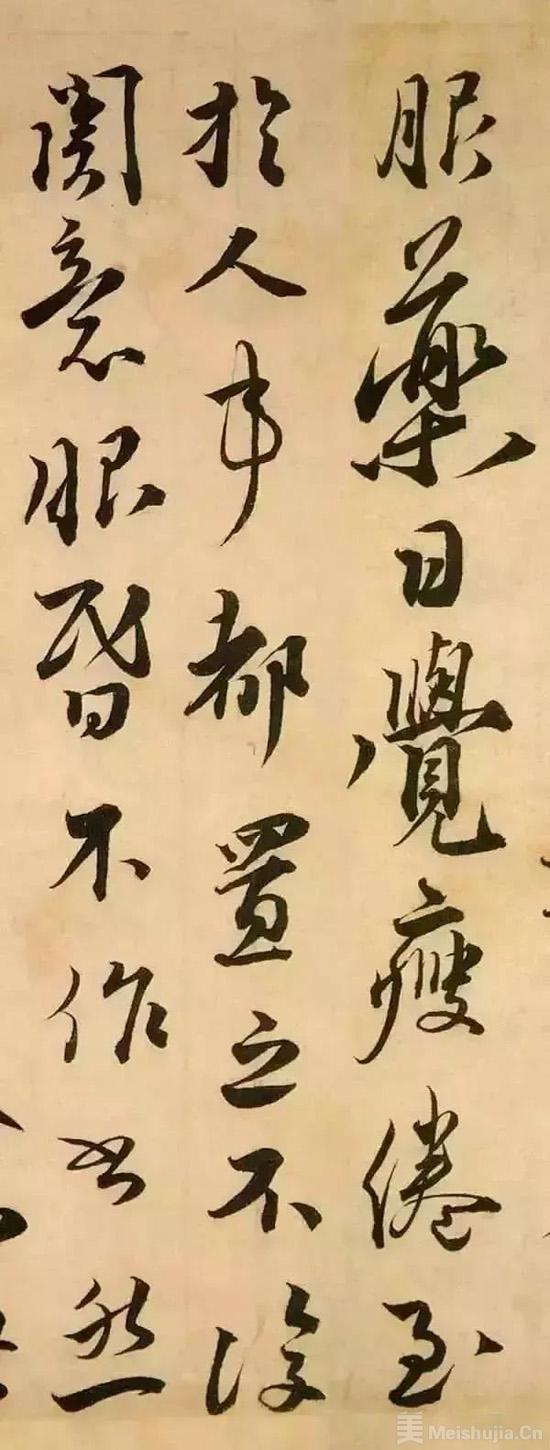 服藥日覺瘦倦至
於人事都置之不復
關意眼昏不作書然
美 Meishujia.Cn